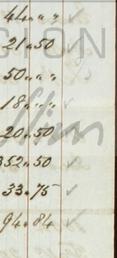 44 " "
21 " 50
50 " " "
18 " " "
20 " 50
352 " 50
33 " 75
94 " 84